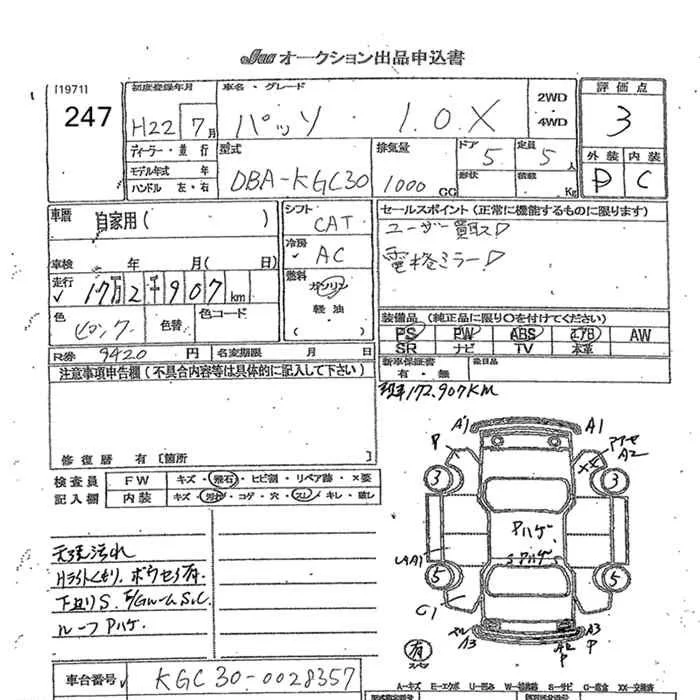 Jaa オークション出品申込書
[1971]
247
初度登録年月
H22 7月
車名・グレード
パッソ・1.0X
2WD
・
4WD
評価点
3
ディーラー・並行
モデル年式 年
ハンドル 左・右
型式
DBA-KGC30
排気量
1000 CC
ドア
5
形状
定員
5人
積載 Kg
外装 内装
D C
車歴
自家用( )
車検 年 月( 日)
走行
17万2千907km
色
ピンク
色替
色コード
シフト
CAT
冷房
AC
燃料
ガソリン
軽油
( )
セールスポイント (正常に機能するものに限ります)
ユーザー買取!
電格ミラー!
装備品 (純正品に限り○を付けてください)
PS PW ABS エアB AW
SR ナビ TV 本革
新車保証書
有・無
R券 9420 円
名変期限 月 日
注意事項申告欄 (不具合内容等は具体的に記入して下さい)
修復歴 有 [箇所 ]
172,907KM
検査員
記入欄
FW キズ・飛石・ヒビ割・リペア跡・×要
内装 キズ・汚れ・コゲ・穴・スレ・キレ・破レ
天張汚れ
ルーフPハゲ.
A1 A1
P
A2
3 3
Pハゲ.
5 5
G1
A3
A2 A3
P P
有
車台番号
KGC30-0028357
A-キズ E-エクボ U-ヘコミ W-補修跡 S-サビ C-腐食 XX-交換済